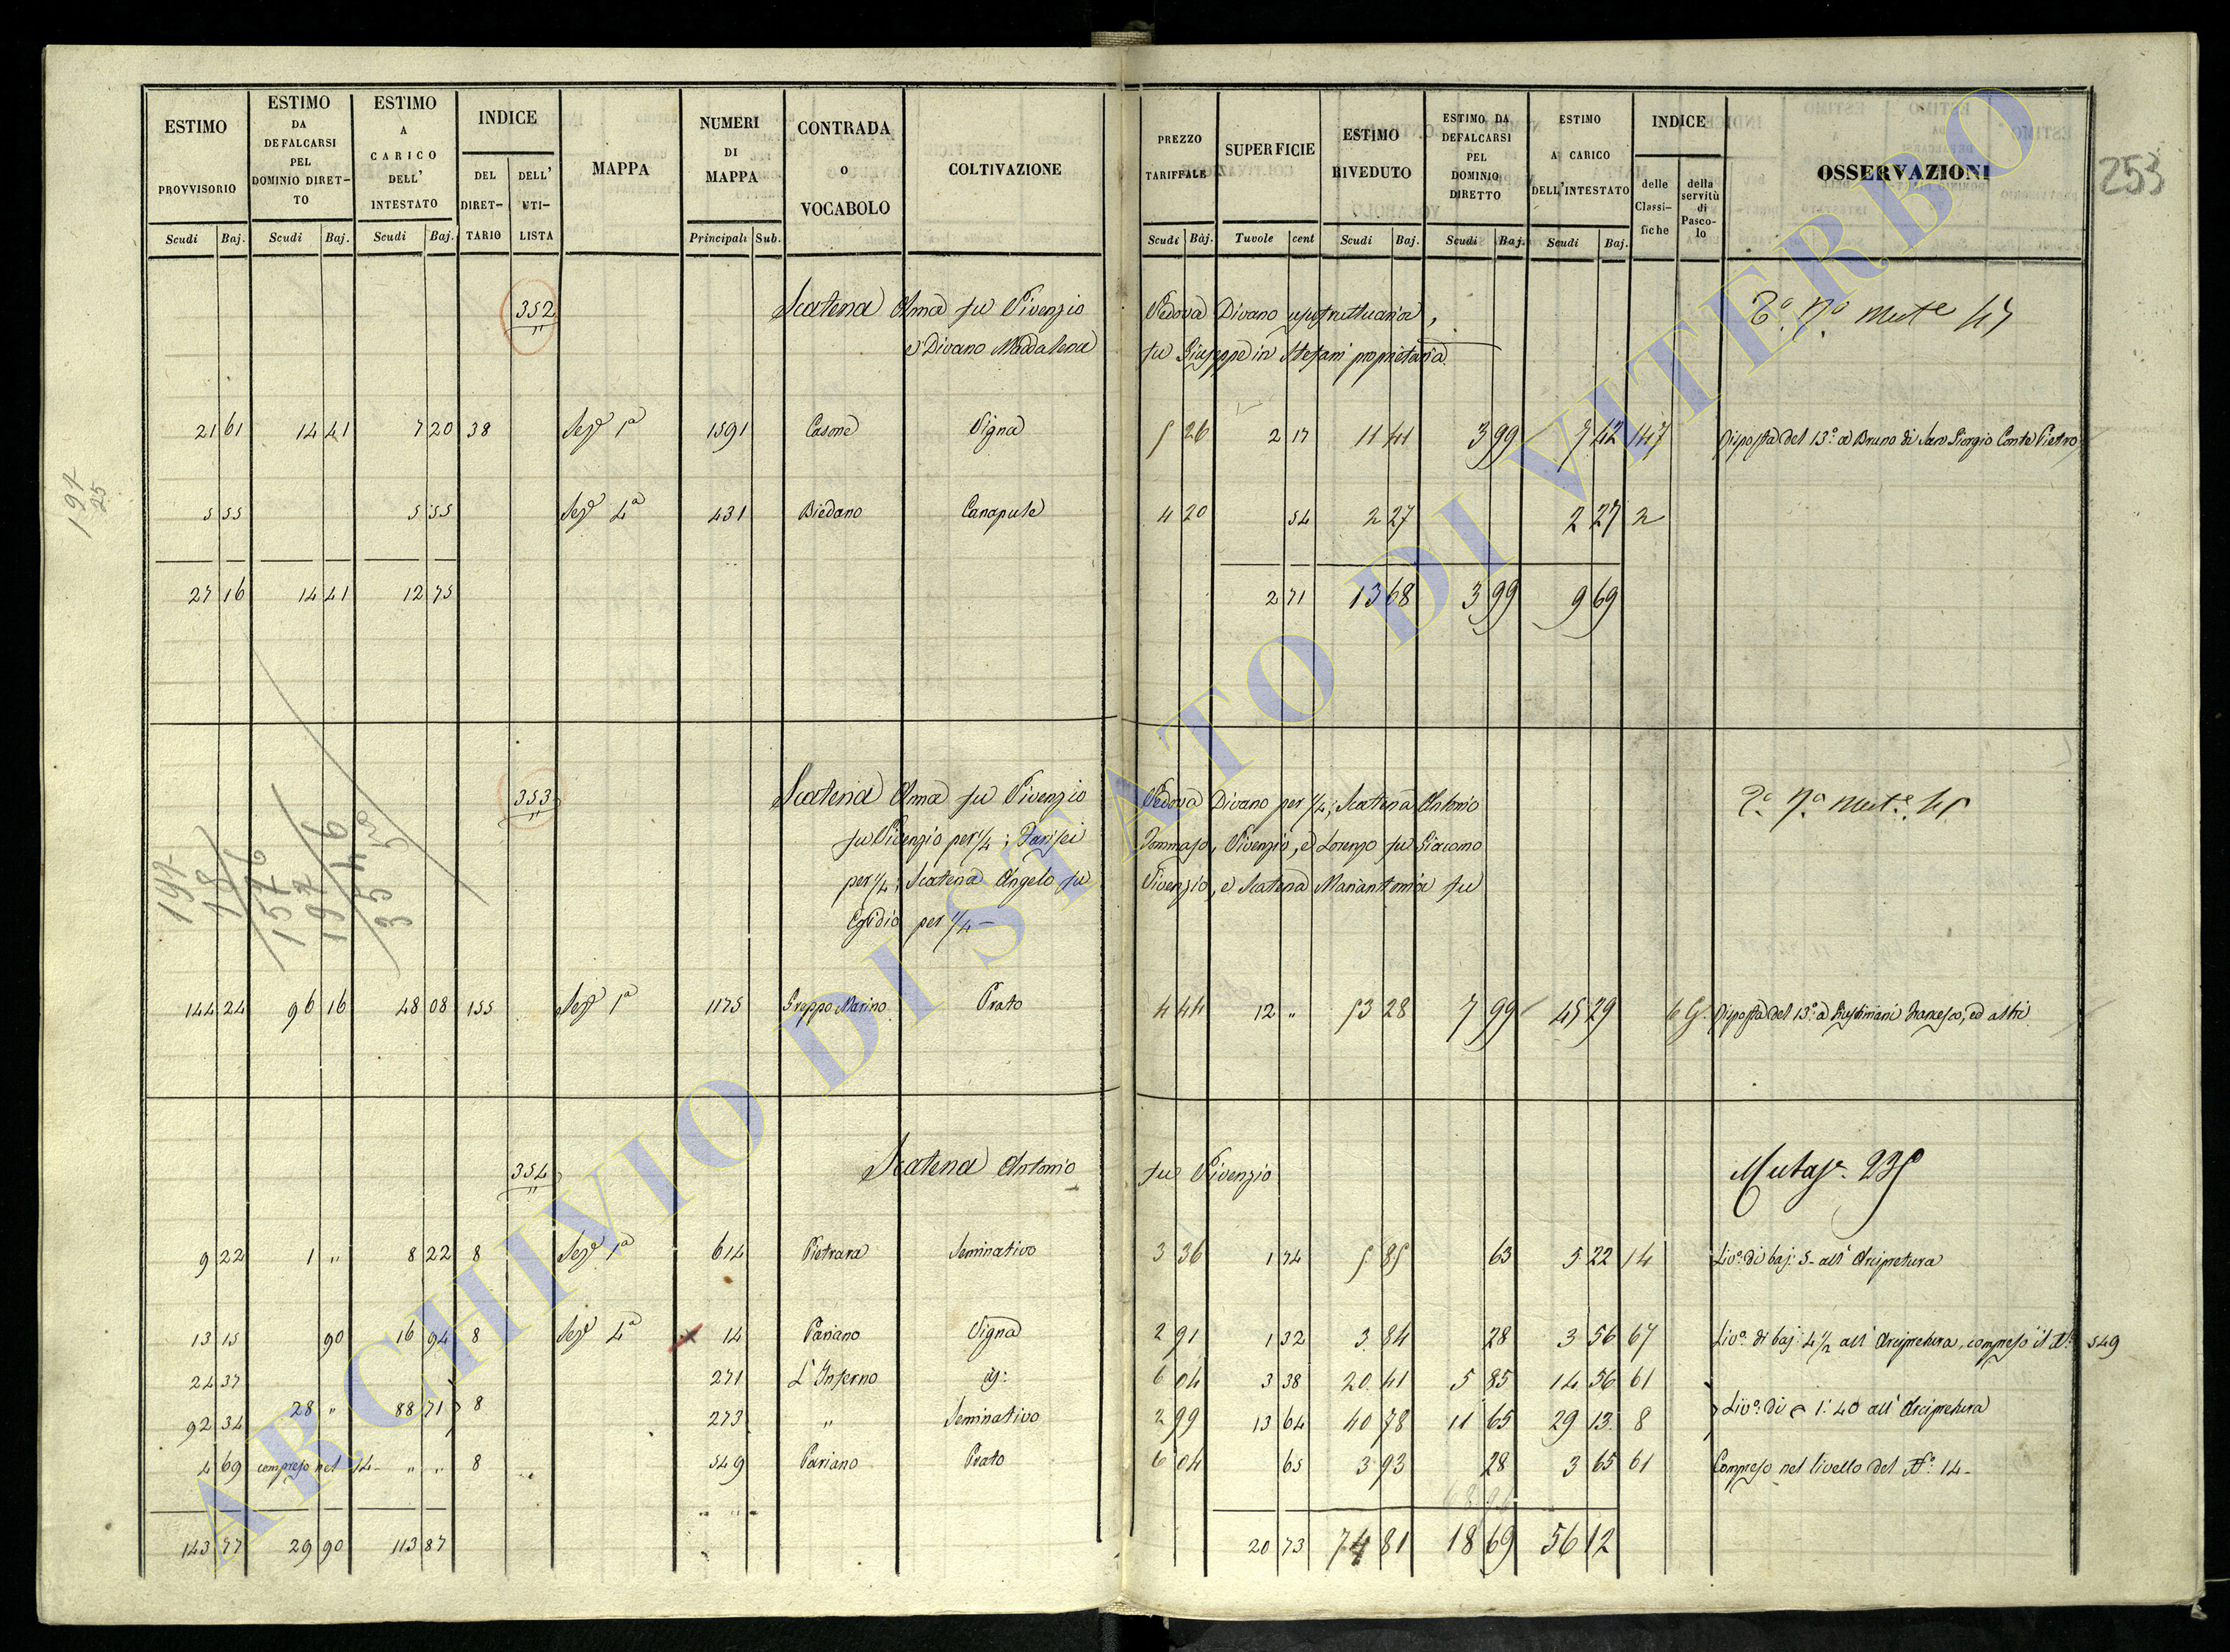 ESTIMO PROVVISORIO
ESTIMO DA DEFALCARSI PEL DOMINIO DIRETTO
ESTIMO A CARICO DELL' INTESTATO
INDICE
DEL DIRET- TARIO
DELL' UTI- LISTA
MAPPA
NUMERI DI MAPPA
CONTRADA o VOCABOLO
COLTIVAZIONE
PREZZO TARIFFALE
SUPERFICIE
ESTIMO RIVEDUTO
ESTIMO DA DEFALCARSI PEL DOMINIO DIRETTO
ESTIMO A CARICO DELL'INTESTATO
INDICE
delle Classi- fiche
della servitù di Pasco- lo
OSSERVAZIONI
253
Scudi Baj. Scudi Baj. Scudi Baj. Principali Sub. Scudi Baj. Tavole cent Scudi Baj. Scudi Baj. Scudi Baj.
352 Scatena Anna fu Vivenzio Vedova Divano usufruttuaria,
e Divano Maddalena fu Giuseppe in Stefani proprietaria
21 61 14 41 7 20 38 Sez.e 1a 1591 Casone Vigna 5 26 2 17 11 41 3 99 7 42 147 Risposta del 13.o a Bruno di San Giorgio Conte Pietro
5 55 5 55 Sez.e 4a 431 Biedano Canapule 4 20 54 2 27 2 27 2
27 16 14 41 12 75 2 71 13 68 3 99 9 69
353 Scatena Anna fu Vivenzio Vedova Divano per 1/4; Scatena Antonio
fu Vivenzio per 1/4; Parisei Tommaso, Vivenzio, e Lorenzo fu Giacomo
per 1/4; Scatena Angelo fu Vivenzio, e Scatena Mariantonia fu
Egidio per 1/4
144 24 96 16 48 08 155 Sez.e 1a 1175 Greppo Marino Prato 4 44 12 " 53 28 7 99 45 29 6 G. Risposta del 13.o a Giustiniani Francesco, ed altri
354 Scatena Antonio fu Vivenzio
Mutaz.e 235
9 22 1 " 8 22 8 Sez.e 1a 614 Pietrara Seminativo 3 36 1 74 5 85 63 5 22 14 Liv.o di baj: 5- all' Arcipretura
13 15 90 16 94 8 Sez.e 4a 14 Pariano Vigna 2 91 1 32 3 84 28 3 56 67 Liv.o di baj: 4 1/2 all' Arcipretura, compreso il N.o 549
24 37 271 L'Inferno id: 6 04 3 38 20 41 5 85 14 56 61
92 34 28 " 88 71 8 273 " Seminativo 2 99 13 64 40 78 11 65 29 13 8 Liv.o di 1:40 all' Arcipretura
4 69 compreso nel 14 - " " 8 549 Pariano Prato 6 04 65 3 93 28 3 65 61 Compreso nel livello del N.o 14-
143 77 29 90 113 87 20 73 74 81 18 69 56 12
ARCHIVIO DI STATO DI VITERBO